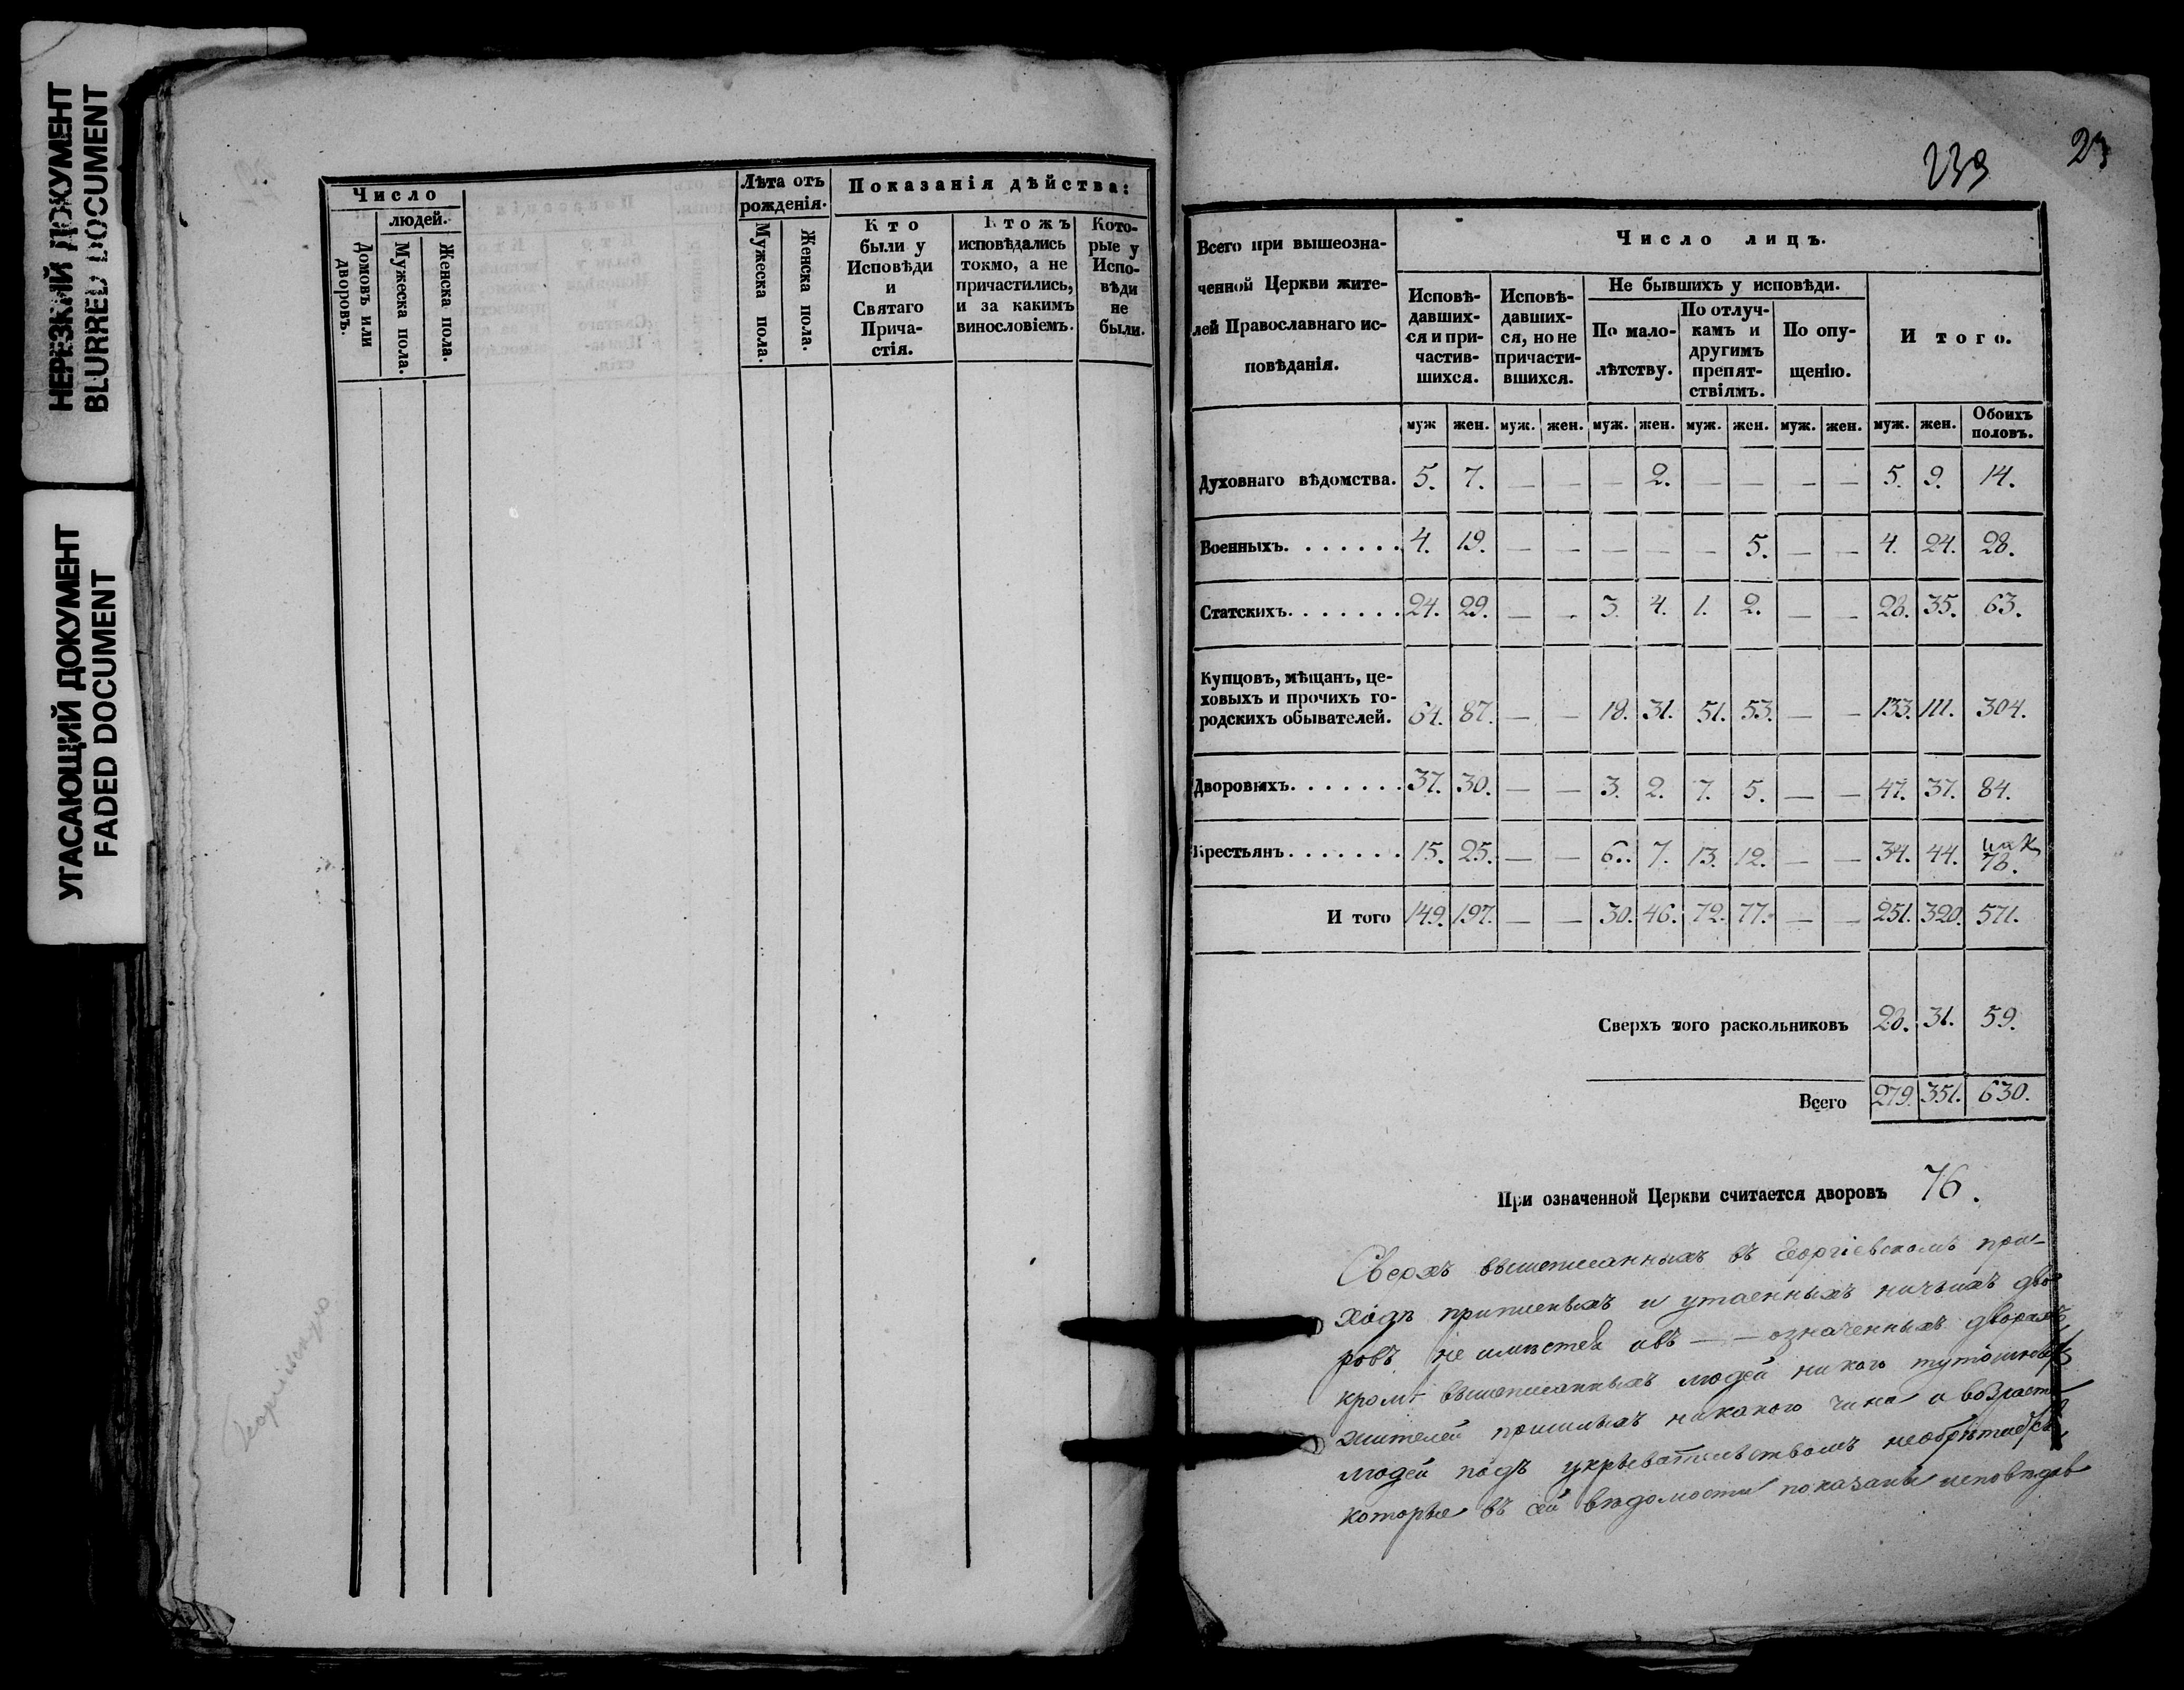 НЕРЕЗКИЙ ДОКУМЕНТ
BLURRED DOCUMENT
УГАСАЮЩИЙ ДОКУМЕНТ
FADED DOCUMENT
Число
людей.
Домовъ или дворовъ.
Мужеска пола.
Женска пола.
Лѣта отъ рожденія.
Мужеска пола.
Женска пола.
Показанія дѣйства:
Кто
были у
Исповѣди
и
Святаго
Прича-
стія.
Ктожъ
исповѣдались
токмо, а не
причастились,
и за какимъ
винословіемъ.
Кото-
рые у
Испо-
вѣди
не
были.
239
Всего при вышеозна-
ченной Церкви жите-
лей Православнаго ис-
повѣданія.
Число лицъ.
Исповѣ-
давших-
ся и при-
частив-
шихся.
Исповѣ-
давших-
ся, но не
причасти-
вшихся.
Не бывшихъ у исповѣди.
По мало-
лѣтству.
По отлуч-
камъ и
другимъ
препят-
ствіямъ.
По опу-
щенію.
И того.
муж жен. муж. жен. муж. жен. муж. жен. муж. жен. муж. жен. Обоихъ половъ.
Духовнаго вѣдомства. 5. 7. — — — 2. — — — — 5. 9. 14.
Военныхъ. . . . . . . 4. 19. — — — — — 5. — — 4. 24. 28.
Статскихъ. . . . . . . 24. 29. — — 3. 4. 1. 2. — — 28. 35. 63.
Купцовъ, мѣщанъ, це-
ховыхъ и прочихъ го-
родскихъ обывателей. 64. 87. — — 18. 31. 51. 53. — — 133. 304.
Дворовыхъ. . . . . . . 37. 30. — — 3. 2. 7. 5. — — 47. 37. 84.
Крестьянъ. . . . . . . 15. 25. — — 6. 7. 13. 12. — — 34. 44. 78.
И того 149. 197. — — 30. 46. 72. 77. — — 251. 320. 571.
Сверхъ того раскольниковъ 28. 31. 59.
Всего 279. 351. 630.
При означенной Церкви считается дворовъ 76.
Сверхъ вышеписанныхъ въ Георгіевскомъ при-
ходѣ прописныхъ и утаенныхъ ничьихъ дво
ровъ не имѣется авъ — — означенныхъ дворахъ
кромѣ вышеписанныхъ людей никого
жителей пришлыхъ никакого чина и возраста
людей подъ укрывательствомъ
которые въ сей вѣдомости показаны исповѣдав